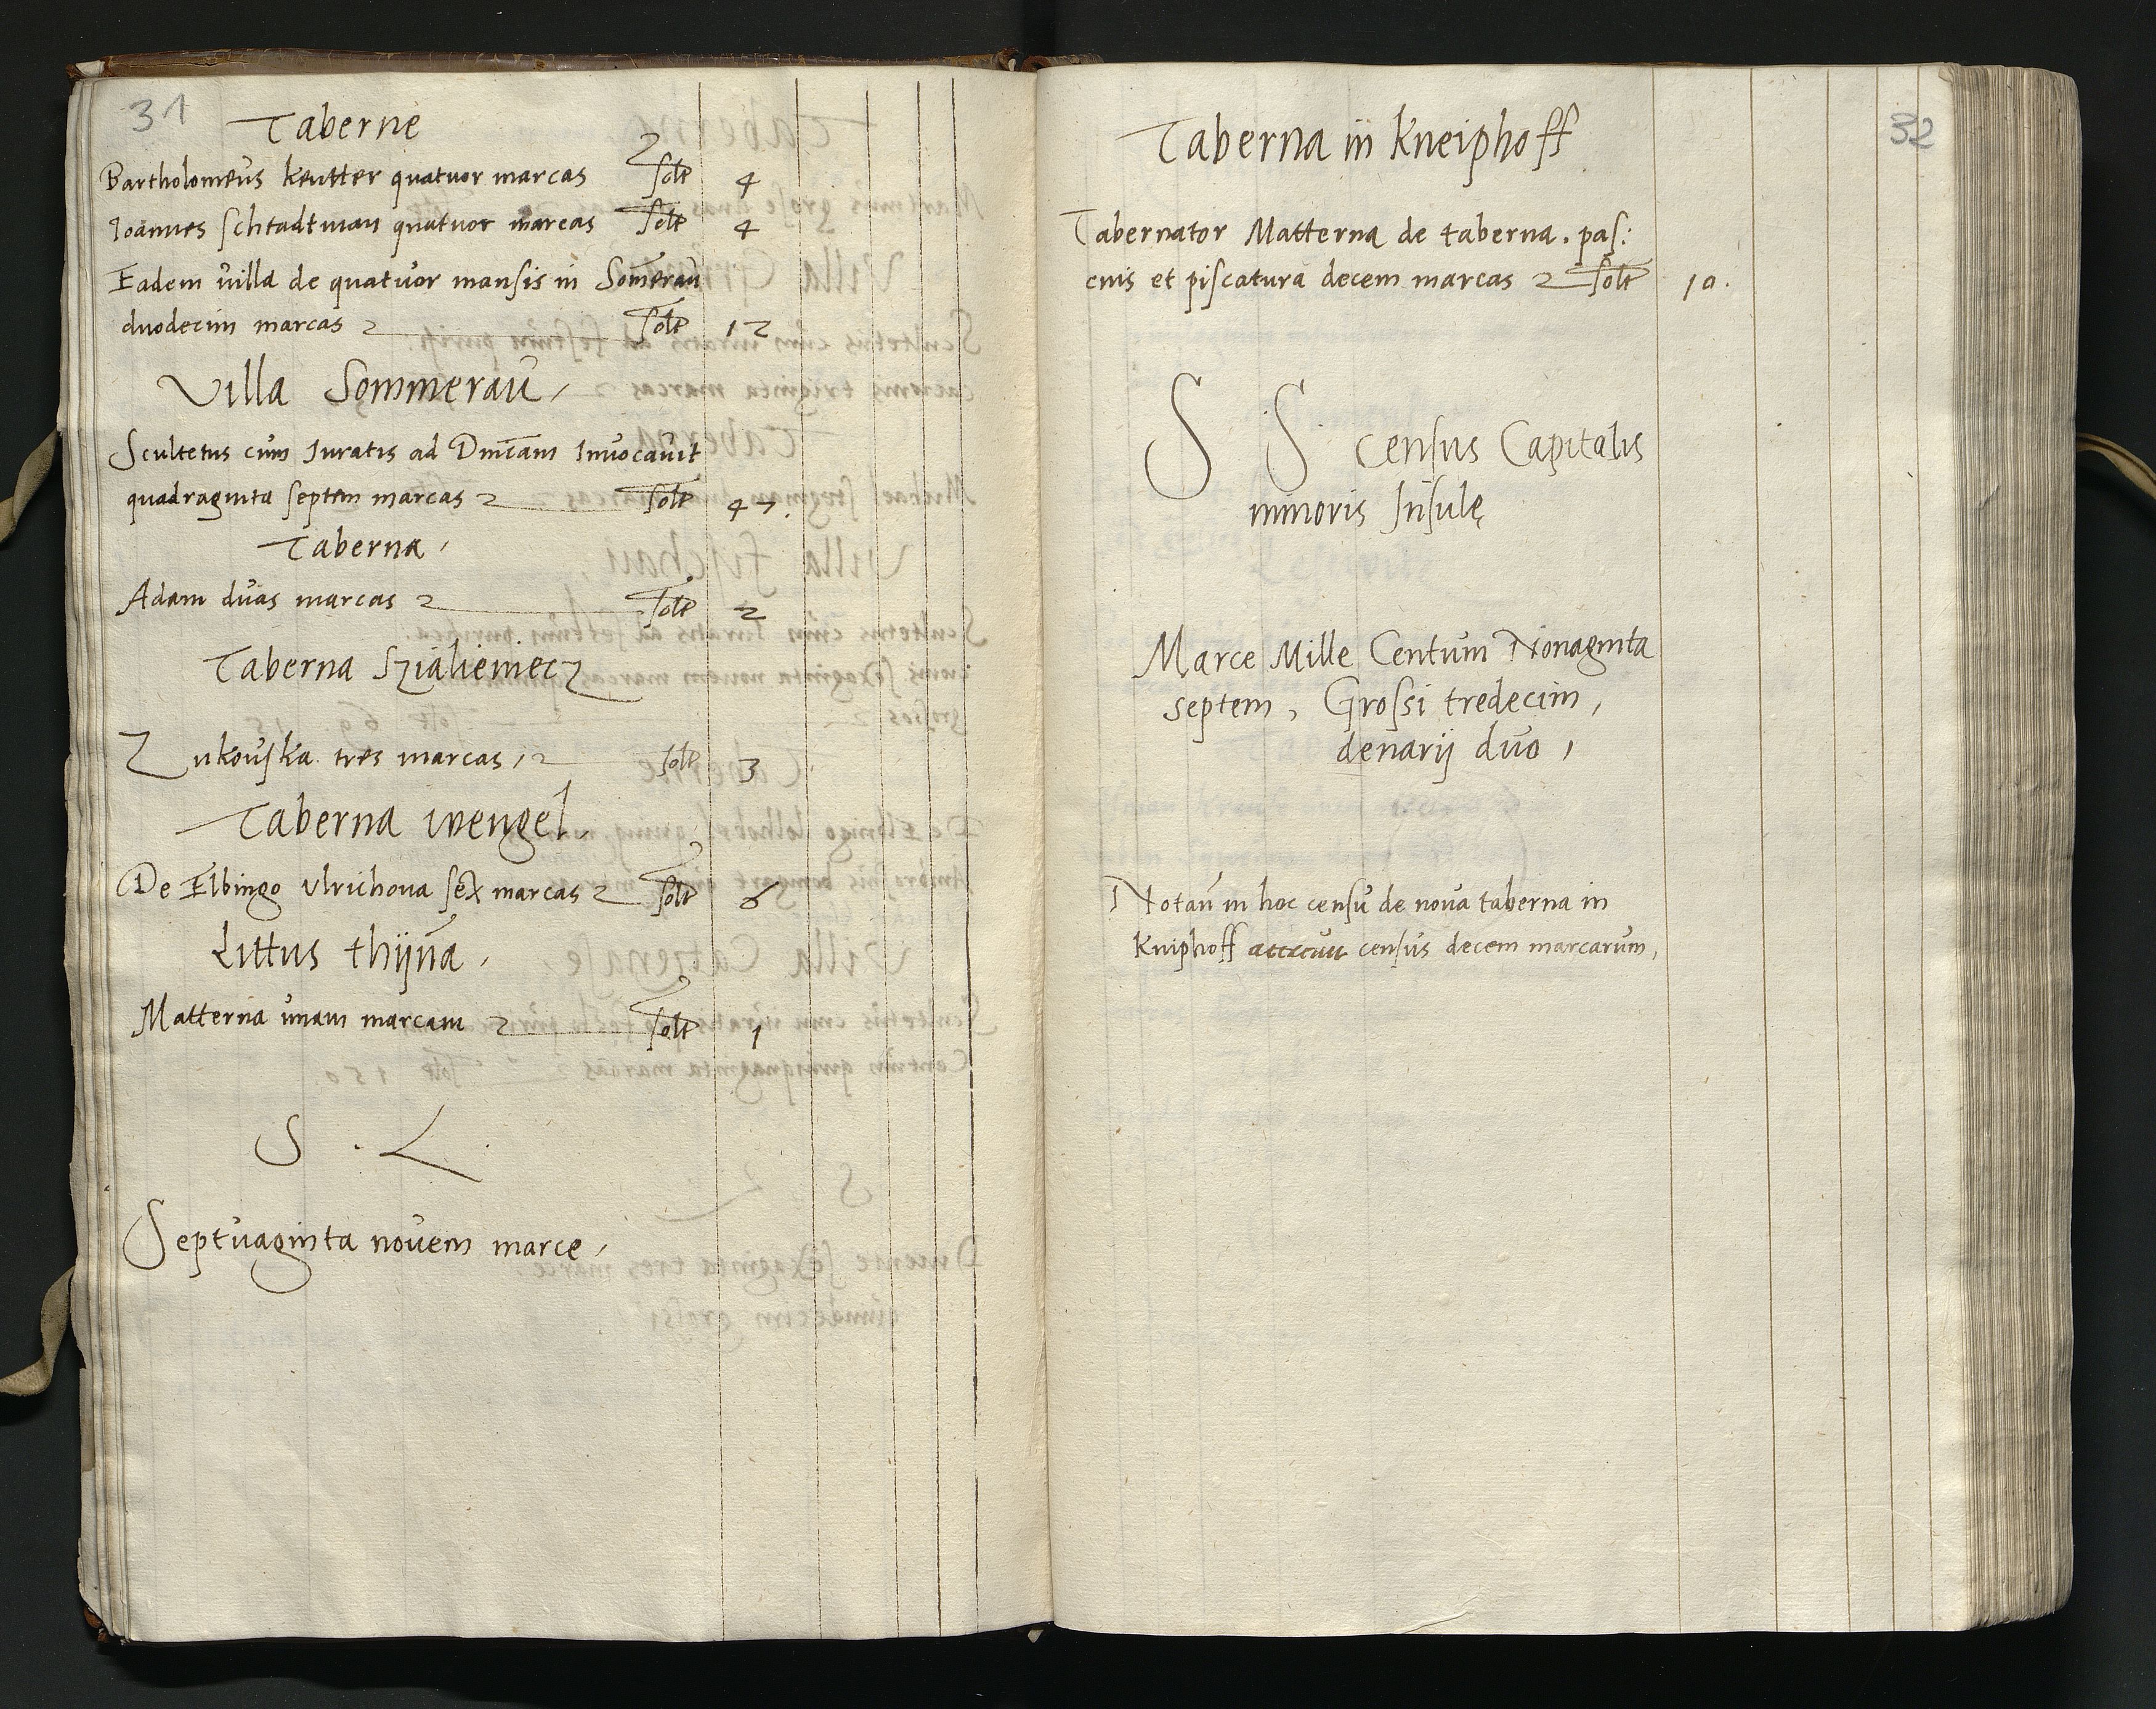 31
Taberne
Bartholomeus Keutter quatuor marcas solt 4
Ioannes Schtadtman quatuor marcas solt 4
Eadem villa de quatuor mansis in Somerau
duodecim marcas solt 12
Villa Sommerau,
Scultetus cum Iuratis ad Dnicam Invocavit
quadraginta septem marcas solt 47.
Taberna,
Adam duas marcas solt 2
Taberna Szialieniecz
Zukouska tres marcas, solt 3
Taberna wengel.
De Elbingo Ulrichova sex marcas solt 6
Littus thijna,
Matterna unam marcam solt 1
S. L.
Septuaginta novem marce,
32
Taberna in Kneiphoff
Tabernator Matterna de taberna. pas:
cuis et piscatura decem marcas solt 10.
S S census Capitalis
minoris Insulę
Marce Mille Centum Nonaginta
septem, Grossi tredecim,
denarij duo,
Notan in hoc censu de nova taberna in
Kniphoff census decem marcarum,